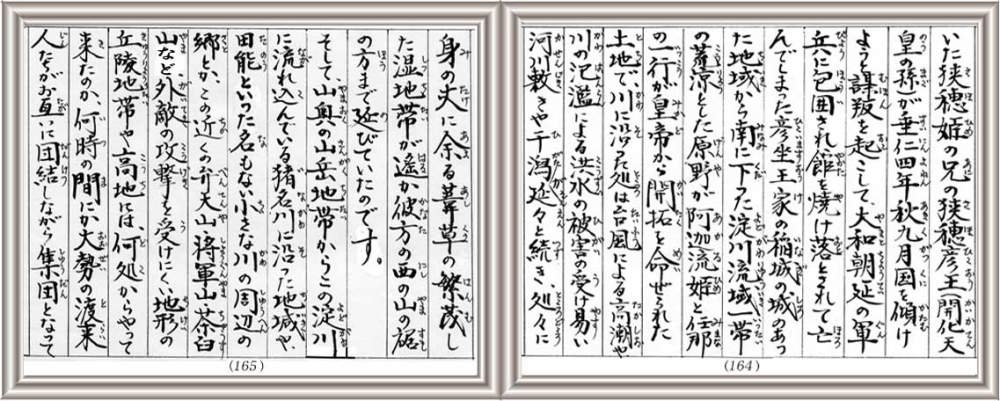 いた狭穂姫の兄の狭穂彦王(開化天
皇の孫)が垂仁四年秋九月国を傾け
ようと謀叛を起こして、大和朝廷の軍
兵に包囲され館を焼け落とされて亡
んでしまった彦坐王家の稲城の城のあっ
た地域から南に下った淀川流域一帯
の荒涼とした原野が阿迦流姫と任那
の一行が皇帝から開拓を命ぜられた
土地で、川に沿った処は台風による高潮や
川の氾濫による洪水の被害の受け易い
河川敷きや干潟延々と続き、処々に
(164)
身の丈に余る葦草の繁茂し
た湿地帯が遥か彼方の西の山の裾
の方まで延びていたのです。
そして、山奥の山岳地帯からこの淀川
に流れ込んでいる猪名川に沿った地域や、
田能といった名もない小さな川の周辺の
郷とか、この近くの弁天山、将軍山、茶臼
山など、外敵の攻撃も受けにくい地形の
丘陵地帯や高地には、何処からやって
来たのか、何時の間にか大勢の渡来
人たちがお互いに団結しながら集団となって
(165)